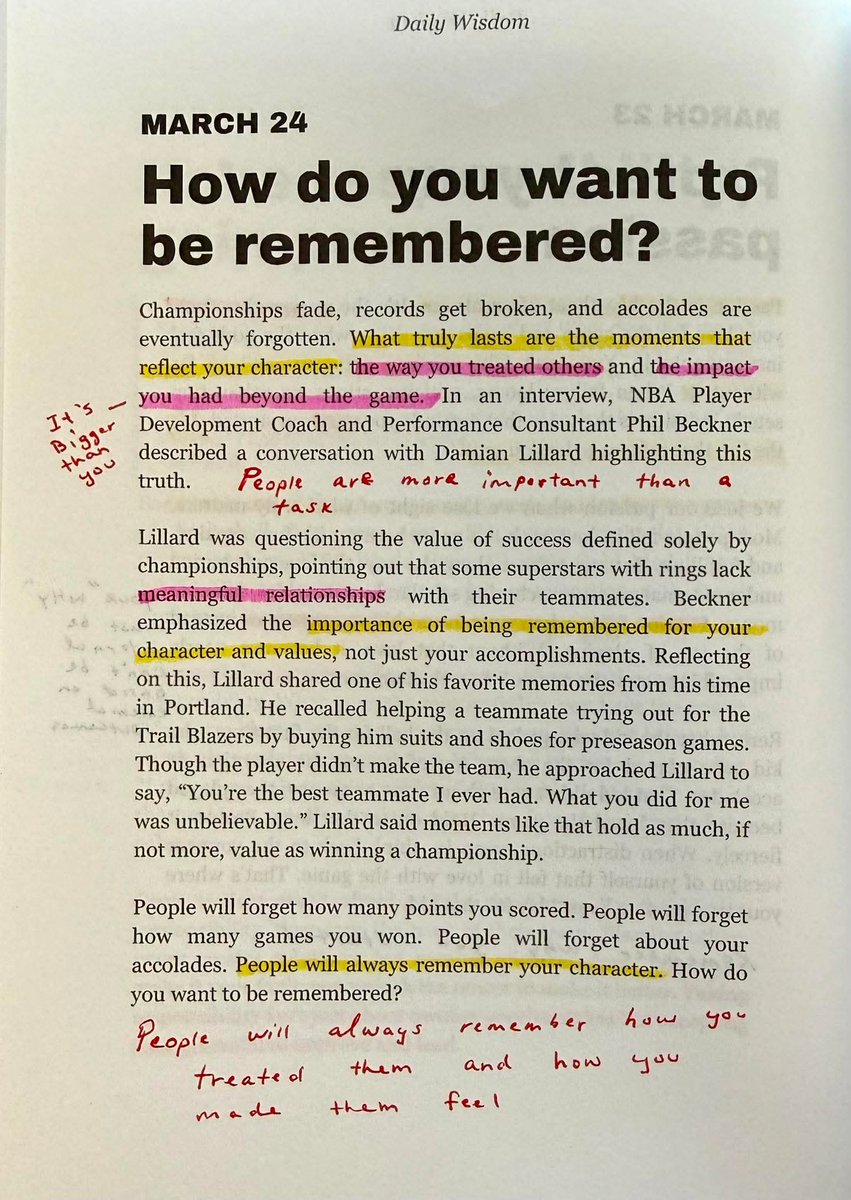 Daily Wisdom
MARCH 24
How do you want to
be remembered?
Championships fade, records get broken, and accolades are
eventually forgotten. What truly lasts are the moments that
reflect your character: the way you treated others and the impact
you had beyond the game. In an interview, NBA Player
Development Coach and Performance Consultant Phil Beckner
described a conversation with Damian Lillard highlighting this
truth. People are more important than a
task
It's
Bigger
than
you
Lillard was questioning the value of success defined solely by
championships, pointing out that some superstars with rings lack
meaningful relationships with their teammates. Beckner
emphasized the importance of being remembered for your
character and values, not just your accomplishments. Reflecting
on this, Lillard shared one of his favorite memories from his time
in Portland. He recalled helping a teammate trying out for the
Trail Blazers by buying him suits and shoes for preseason games.
Though the player didn’t make the team, he approached Lillard to
say, “You’re the best teammate I ever had. What you did for me
was unbelievable.” Lillard said moments like that hold as much, if
not more, value as winning a championship.
People will forget how many points you scored. People will forget
how many games you won. People will forget about your
accolades. People will always remember your character. How do
you want to be remembered?
People will always remember how you
treated them and how you
made them feel